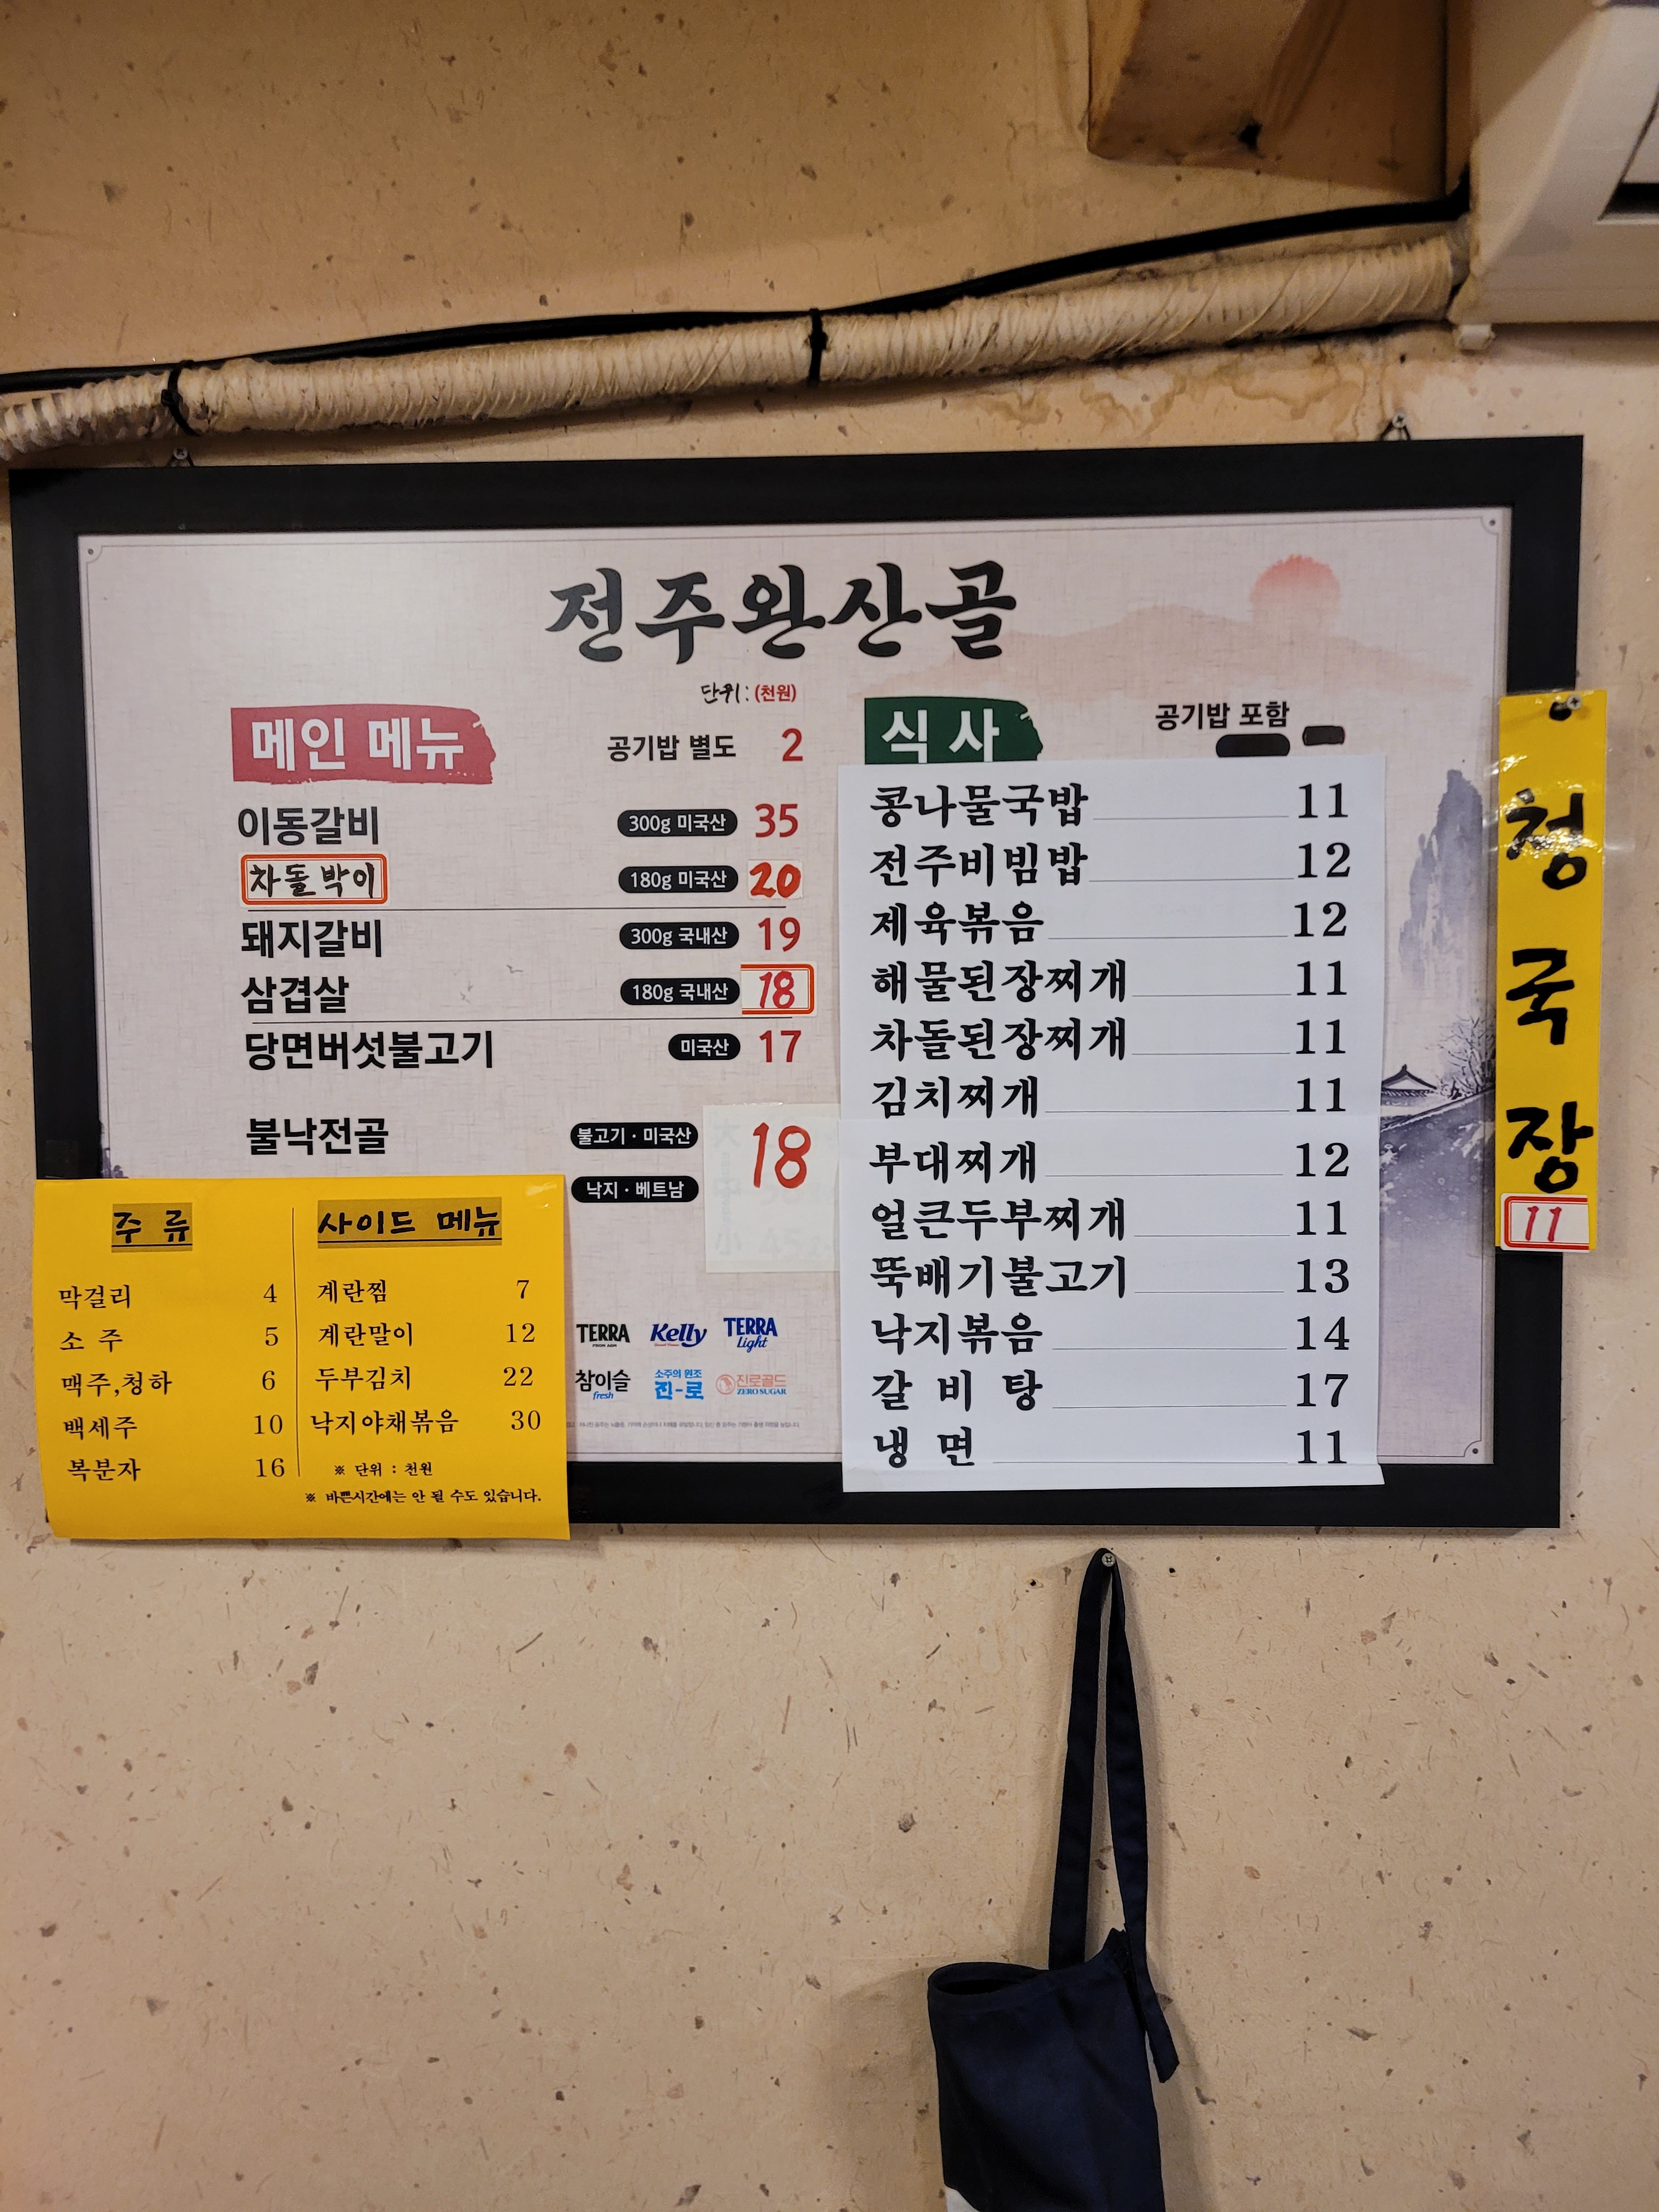 전주완산골
단위: (천원)
메인 메뉴
공기밥 별도 2
이동갈비 300g 미국산 35
차돌박이 180g 미국산 20
돼지갈비 300g 국내산 19
삼겹살 180g 국내산 18
당면버섯불고기 미국산 17
불낙전골 불고기 · 미국산 18
낙지 · 베트남
주 류
막걸리 4
소 주 5
맥주,청하 6
백세주 10
복분자 16
사이드 메뉴
계란찜 7
계란말이 12
두부김치 22
낙지야채볶음 30
※ 단위 : 천원
※ 바쁜시간에는 안 될 수도 있습니다.
TERRA Kelly TERRA Light
참이슬 fresh 소주의 원조 진-로 진로골드 ZERO SUGAR
식 사
공기밥 포함
콩나물국밥 11
전주비빔밥 12
제육볶음 12
해물된장찌개 11
차돌된장찌개 11
김치찌개 11
부대찌개 12
얼큰두부찌개 11
뚝배기불고기 13
낙지볶음 14
갈 비 탕 17
냉 면 11
청국장
11